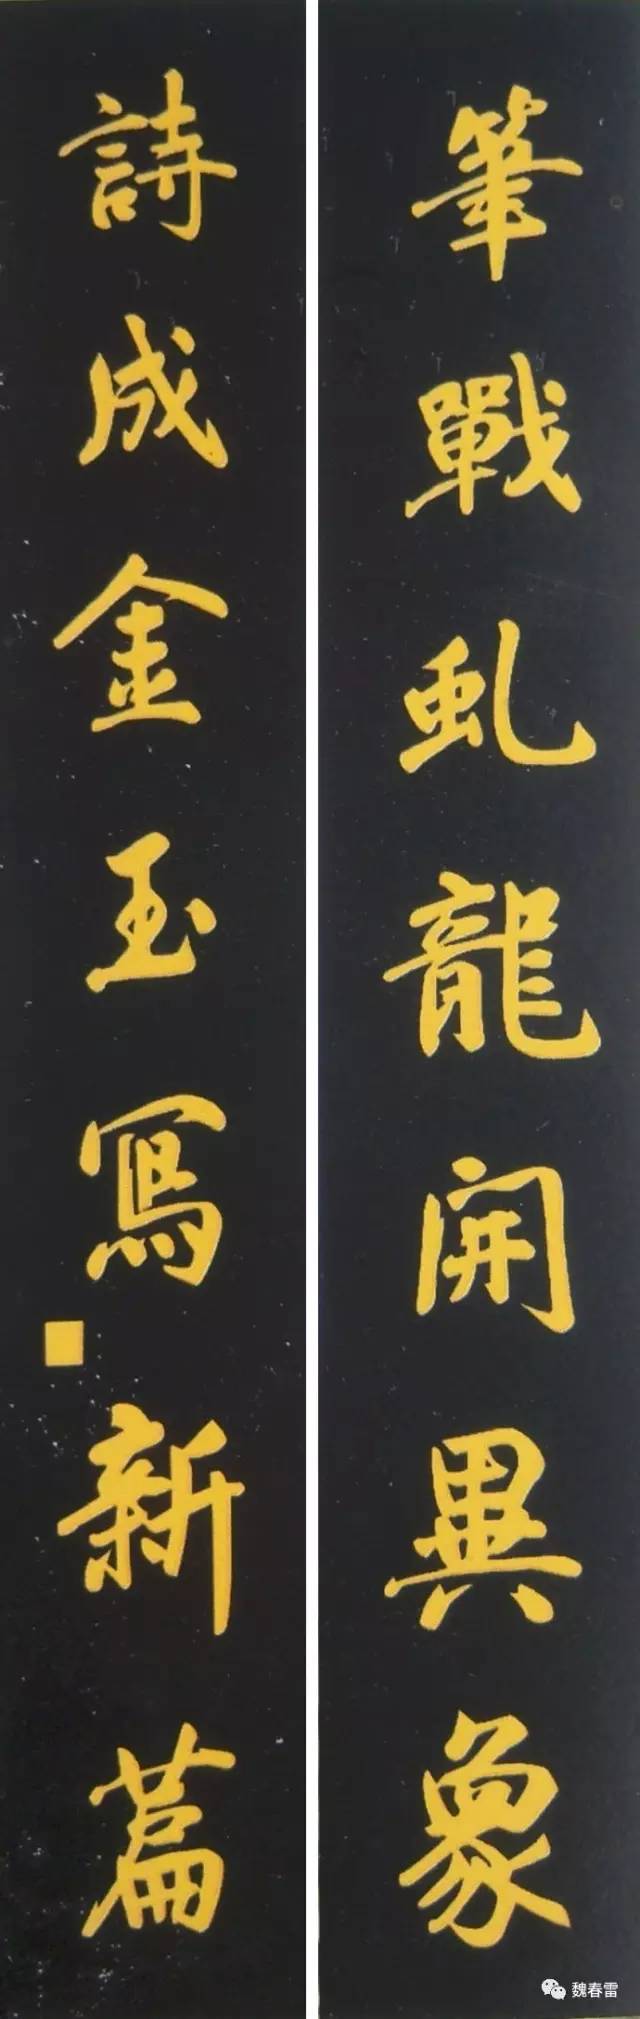 筆戰虬龍開異象
詩成金玉寫新篇
魏春雷